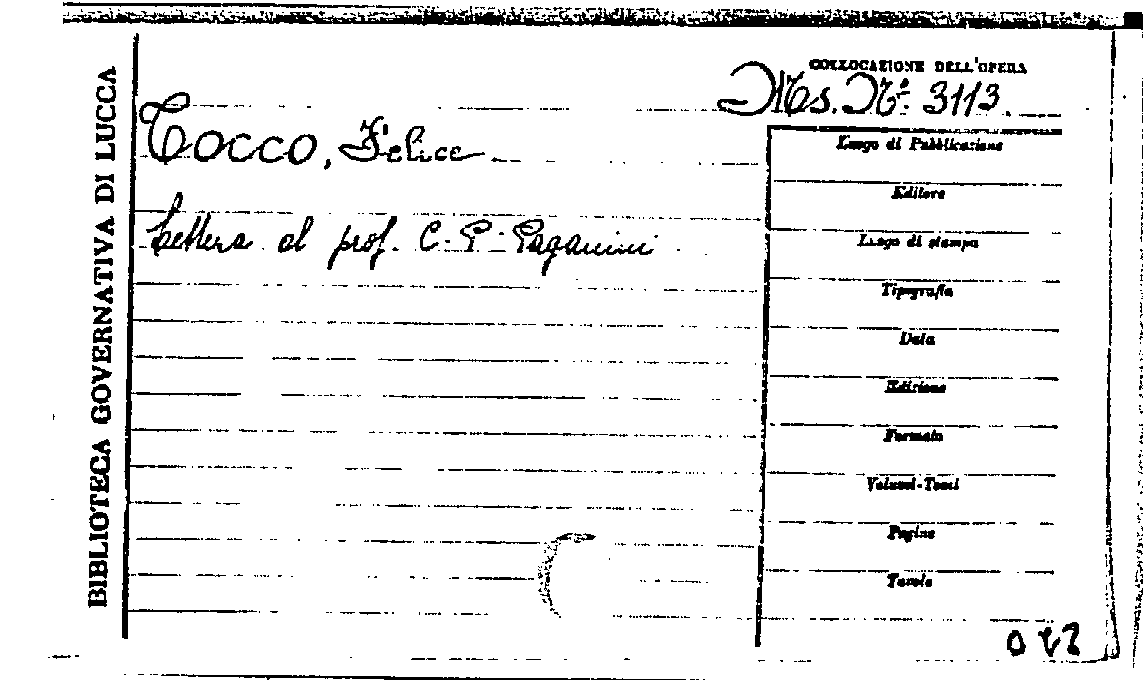 BIBLIOTECA GOVERNATIVA DI LUCCA
COLLOCAZIONE DELL'OPERA
Ms. N.º 3113.
Tocco, Felice
Lettera al prof. C. P. Paganini
Luogo di Pubblicazione
Editore
Luogo di stampa
Tipografia
Data
Edizione
Formato
Volumi-Tomi
Pagine
Tavole